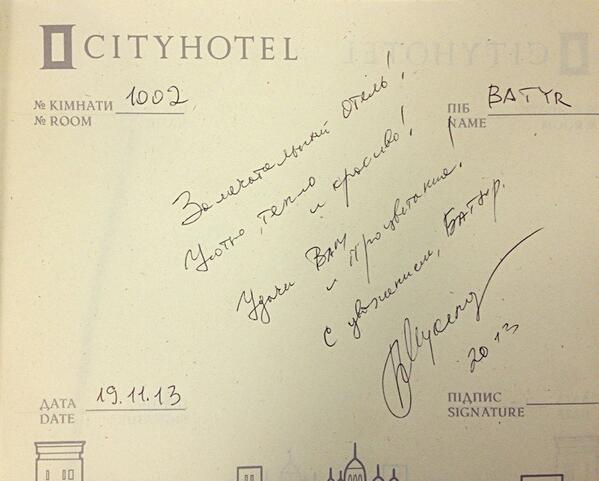 CITYHOTEL
№ КІМНАТИ 1002
№ ROOM
ПІБ BATYR
NAME
Замечательный отель!
Уютно, тепло
и красиво!
Удачи Вам
и Процветания.
С уважением, Батыр.
2013
ДАТА 19.11.13
DATE
ПІДПИС
SIGNATURE